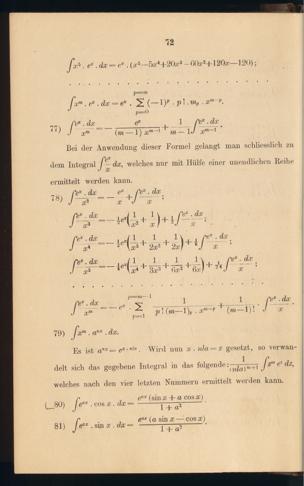 72
∫x⁵ . eˣ . dx = eˣ . (x⁵—5x⁴+20x³—60x²+120x—120);
∫xᵐ . eˣ . dx = eˣ . Σ (—1)ᵖ . p! . m_p . xᵐ⁻ᵖ.
77) ∫ eˣ . dx / xᵐ = — eˣ / ((m—1) xᵐ⁻¹) + 1/(m—1) ∫ eˣ . dx / xᵐ⁻¹.
Bei der Anwendung dieser Formel gelangt man schliesslich zu
dem Integral ∫ eˣ/x dx, welches nur mit Hülfe einer unendlichen Reihe
ermittelt werden kann.
78) ∫ eˣ . dx / x² = — eˣ/x + ∫ eˣ . dx / x;
∫ eˣ . dx / x³ = — ½ eˣ (1/x² + 1/x) + ½ ∫ eˣ . dx / x;
79) ∫xᵐ . aⁿˣ . dx.
Es ist aⁿˣ = eˣ·ⁿˡᵃ. Wird nun x . nla = z gesetzt, so verwan-
delt sich das gegebene Integral in das folgende: 1/(nla)ᵐ⁺¹ ∫zᵐ eᶻ dz,
welches nach den vier letzten Nummern ermittelt werden kann.
80) ∫eᵃˣ . cos x . dx = eᵃˣ (sin x + a cos x) / (1 + a²).
81) ∫eᵃˣ . sin x . dx = eᵃˣ (a sin x — cos x) / (1 + a²).